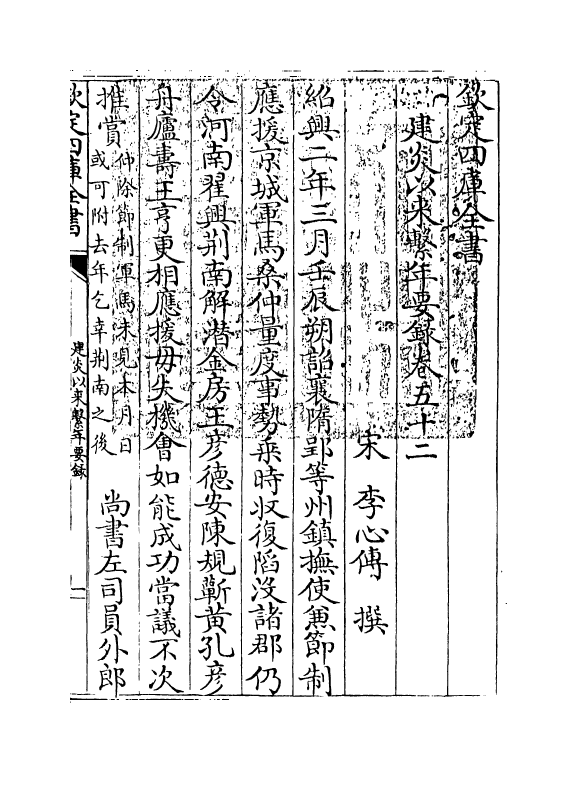 欽定四庫全書
建炎以來繫年要錄卷五十二
宋 李心傳 撰
紹興二年三月壬辰朔詔襄隋郢等州鎮撫使兼節制
應援京城軍馬桑仲量度事勢乘時收復陷没諸郡仍
令河南翟興荆南解潛金房王彦德安陳規蘄黄孔彦
舟廬壽王亨更相應援毋失機會如能成功當議不次
推賞仲除節制軍馬未見本月日或可附去年乞幸荆南之後 尚書左司員外郎
欽定四庫全書
建炎以來繫年要錄
一